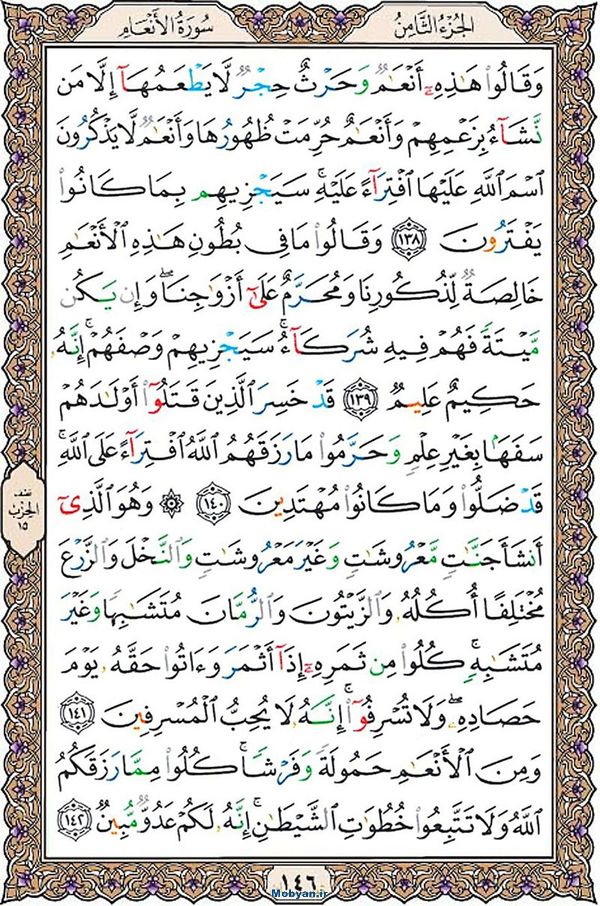 الجُزءُ الثَّامِنُ
سُورَةُ الأَنعَامِ
وَقَالُوا۟ هَٰذِهِۦٓ أَنْعَٰمٌ وَحَرْثٌ حِجْرٌ لَّا يَطْعَمُهَآ إِلَّا مَن
نَّشَآءُ بِزَعْمِهِمْ وَأَنْعَٰمٌ حُرِّمَتْ ظُهُورُهَا وَأَنْعَٰمٌ لَّا يَذْكُرُونَ
ٱسْمَ ٱللَّهِ عَلَيْهَا ٱفْتِرَآءً عَلَيْهِ ۚ سَيَجْزِيهِم بِمَا كَانُوا۟
يَفْتَرُونَ ١٣٨ وَقَالُوا۟ مَا فِى بُطُونِ هَٰذِهِ ٱلْأَنْعَٰمِ
خَالِصَةٌ لِّذُكُورِنَا وَمُحَرَّمٌ عَلَىٰٓ أَزْوَٰجِنَا ۖ وَإِن يَكُن
مَّيْتَةً فَهُمْ فِيهِ شُرَكَآءُ ۚ سَيَجْزِيهِمْ وَصْفَهُمْ ۚ إِنَّهُۥ
حَكِيمٌ عَلِيمٌ ١٣٩ قَدْ خَسِرَ ٱلَّذِينَ قَتَلُوٓا۟ أَوْلَٰدَهُمْ
سَفَهًۢا بِغَيْرِ عِلْمٍ وَحَرَّمُوا۟ مَا رَزَقَهُمُ ٱللَّهُ ٱفْتِرَآءً عَلَى ٱللَّهِ ۚ
قَدْ ضَلُّوا۟ وَمَا كَانُوا۟ مُهْتَدِينَ ١٤٠ ۞ وَهُوَ ٱلَّذِىٓ
أَنشَأَ جَنَّٰتٍ مَّعْرُوشَٰتٍ وَغَيْرَ مَعْرُوشَٰتٍ وَٱلنَّخْلَ وَٱلزَّرْعَ
مُخْتَلِفًا أُكُلُهُۥ وَٱلزَّيْتُونَ وَٱلرُّمَّانَ مُتَشَٰبِهًا وَغَيْرَ
مُتَشَٰبِهٍ ۚ كُلُوا۟ مِن ثَمَرِهِۦٓ إِذَآ أَثْمَرَ وَءَاتُوا۟ حَقَّهُۥ يَوْمَ
حَصَادِهِۦ ۖ وَلَا تُسْرِفُوٓا۟ ۚ إِنَّهُۥ لَا يُحِبُّ ٱلْمُسْرِفِينَ ١٤١
وَمِنَ ٱلْأَنْعَٰمِ حَمُولَةً وَفَرْشًا ۚ كُلُوا۟ مِمَّا رَزَقَكُمُ
ٱللَّهُ وَلَا تَتَّبِعُوا۟ خُطُوَٰتِ ٱلشَّيْطَٰنِ ۚ إِنَّهُۥ لَكُمْ عَدُوٌّ مُّبِينٌ ١٤٢
الحِزْب
١٥
١٤٦
Mobyan.ir